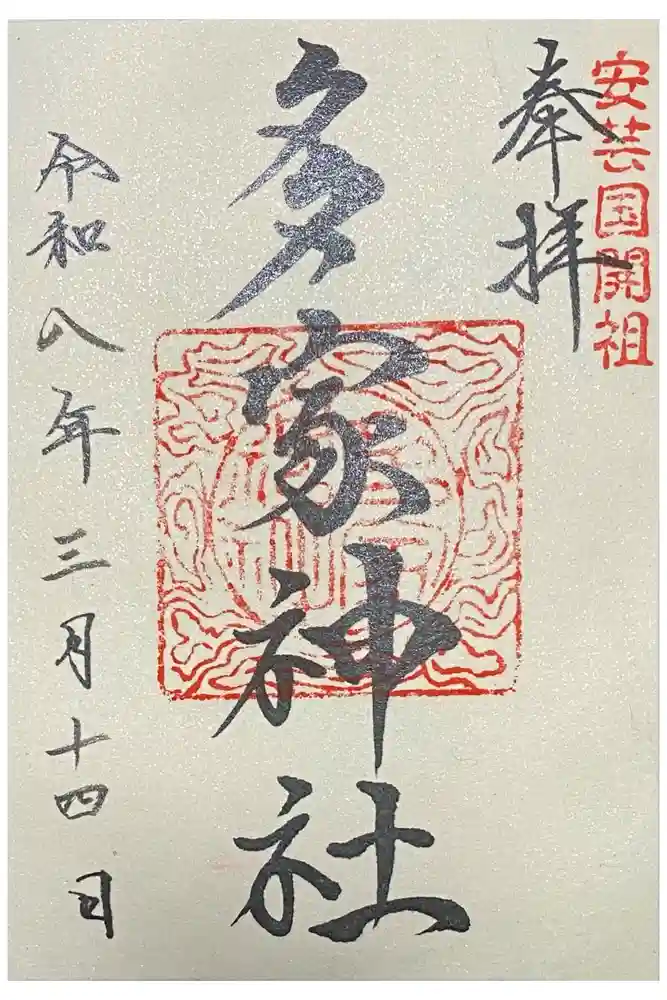 安芸国開祖
奉拝
多家神社
令和八年三月十四日